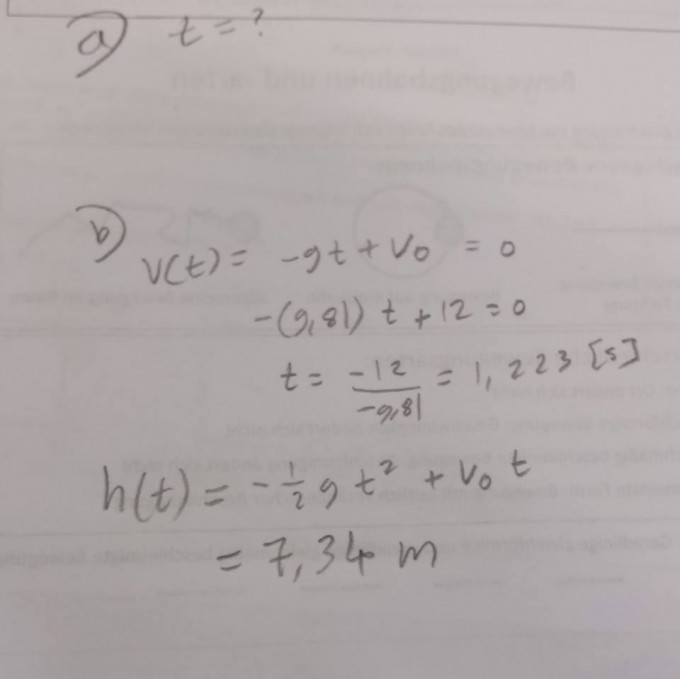 a) t = ?
b)
v(t) = -gt + v₀ = 0
-(9,81) t + 12 = 0
t = -12/-9,81 = 1,223 [s]
h(t) = -½ g t² + v₀ t
= 7,34 m